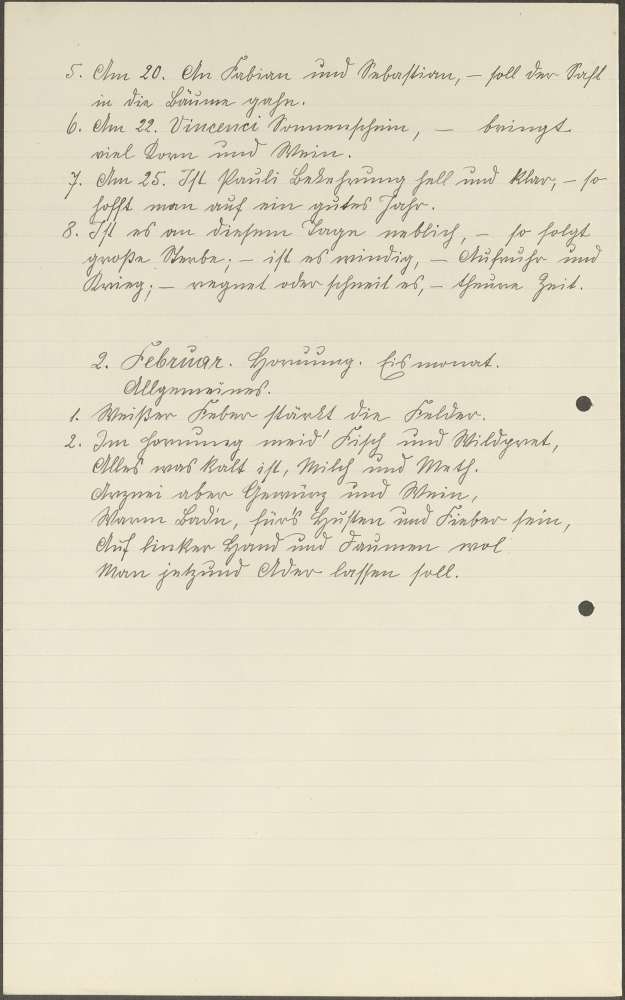 5. Am 20. An Fabian und Sebastian, – soll der Saft
in die Bäume gehn.
6. Am 22. Vincenci Sonnenschein, – bringt
viel Korn und Wein.
7. Am 25. Ist Pauli Bekehrung hell und klar, – so
hofft man auf ein gutes Jahr.
8. Ist es an diesem Tage neblich, – so folgt
große Sterbe; – ist es windig, – Aufruhr und
Krieg; – regnet oder schneit es, – theure Zeit.
2. Februar. Hornung. Eismonat.
Allgemeines.
1. Weißer Feber stärkt die Felder.
2. Im Hornung meid' Fisch und Wildpret,
Alles was kalt ist, Milch und Meth.
Arznei aber Gewürz und Wein,
Warm Bad'n, für's Husten und Fieber sein,
Auf linker Hand und Daumen wol
Man jetzund Ader lassen soll.